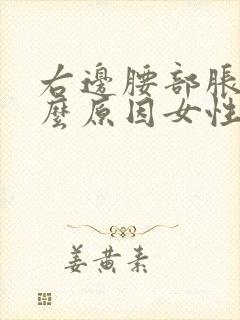 右邊腰部脹
麼原因女性
姜黃素